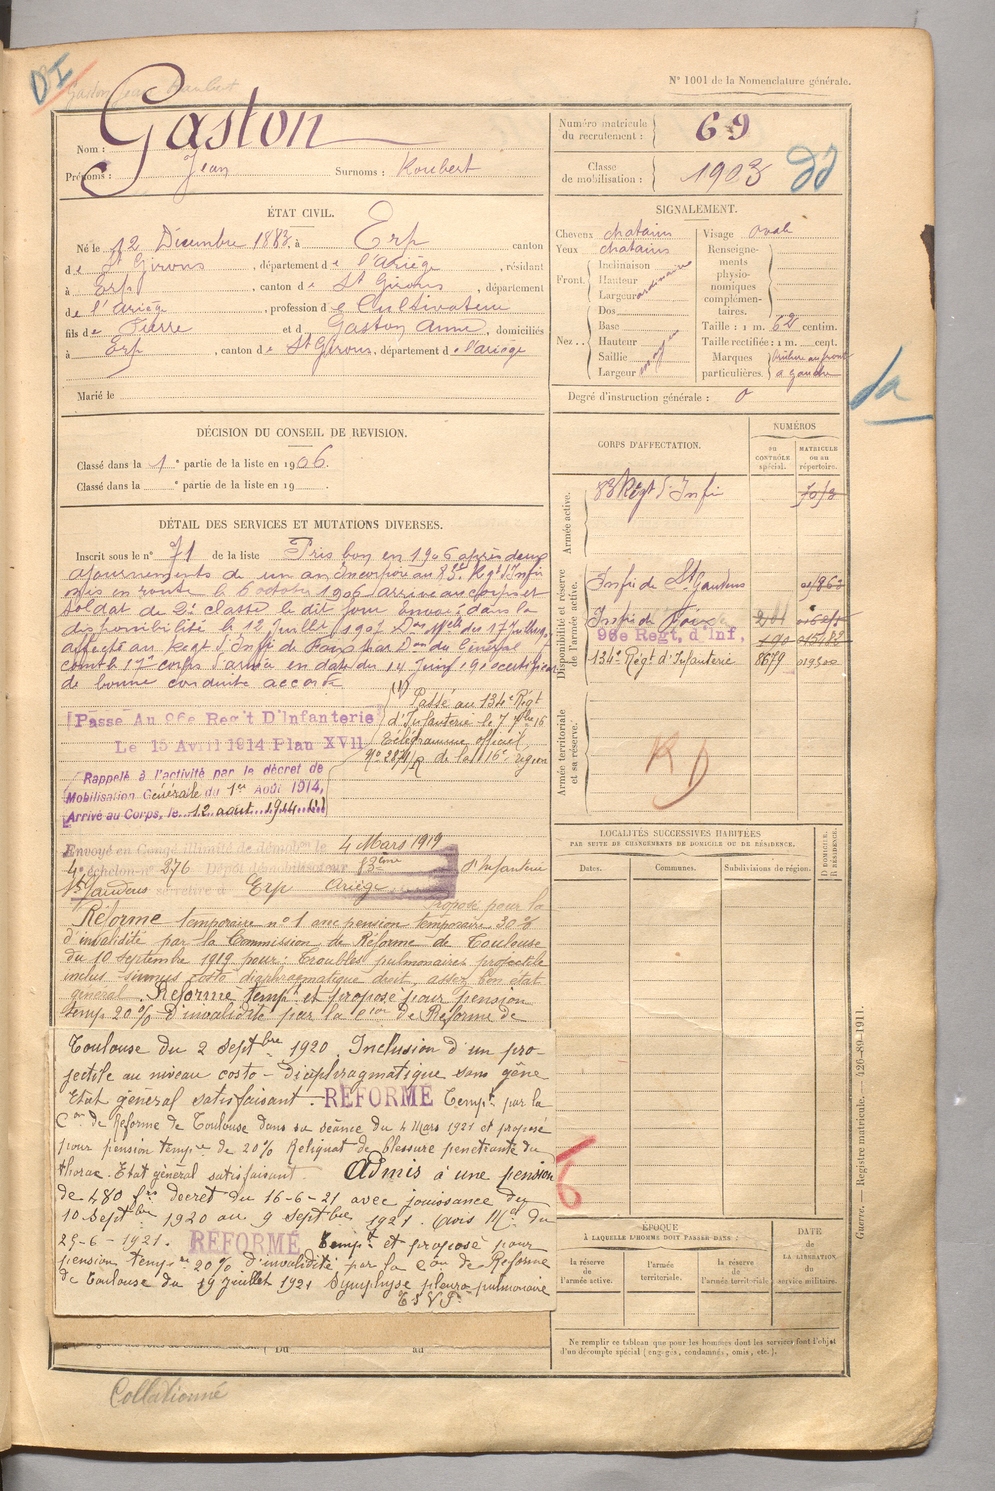 DI
Gaston Jean
N° 1001 de la Nomenclature générale.
Nom : Gaston
Prénoms : Jean Surnoms : Roubert
Numéro matricule du recrutement : 69
Classe de mobilisation : 1903
ÉTAT CIVIL.
Né le 12 Décembre 1883 à Erp canton
de St Girons, département de l'Ariège, résidant
à Erp, canton de St Girons, département
de l'Ariège, profession de Cultivateur
fils de Pierre et de Gaston Anne, domiciliés
à Erp, canton de St Girons, département de l'Ariège
Marié le
SIGNALEMENT.
Cheveux chatains
Yeux chatains
Front. Inclinaison
Hauteur ordinaire
Largeur
Nez.. Dos
Base
Hauteur moyen
Saillie
Largeur
Visage ovale
Renseignements physionomiques complémentaires.
Taille : 1 m. 62 centim.
Taille rectifiée : 1 m. cent.
Marques particulières. brûlure au front à gauche
Degré d'instruction générale : 0
DÉCISION DU CONSEIL DE REVISION.
Classé dans la 1e partie de la liste en 1906.
Classé dans la e partie de la liste en 19 .
DÉTAIL DES SERVICES ET MUTATIONS DIVERSES.
Inscrit sous le n° 71 de la liste Pris bon en 1906 après deux
ajournements de un an Incorporé au 83e Regt d'Infie
mis en route le 6 octobre 1906 arrivé au corps et
soldat de 2e classe le dit jour Envoyé dans la
disponibilité le 12 Juillet 1907
affecté au Regt d'Infie de Foix par Don du Général
comt le 17e corps d'armée en date du 14 Juin certificat
de bonne conduite accordé
Passé Au 96e Reg't D'Infanterie
Le 15 Avril 1914 Plan XVII
(1) Passé au 134e Régt
d'Infanterie le 7 16
Télégramme officiel
de la 16e région
Rappelé à l'activité par le décret de
Mobilisation Générale du 1er Août 1914,
Arrivé au Corps, le 12 aout 1914 (1)
Envoyé en Congé illimité de démobon le 4 Mars 1919
4e échelon n° 276 Dépôt démobilisateur 83ème d'Infanterie
St Gaudens se retire à Erp Ariège
Proposé pour la
Réforme temporaire n° 1 avec pension temporaire 30%
d'invalidité par la Commission de Réforme de Toulouse
du 10 Septembre 1919 pour : Troubles pulmonaires projectile
inclus sinus costo diaphragmatique droit, assez bon état
général. Réformé tempt et proposé pour pension
temp 20% d'invalidité par la Con de Réforme de
Toulouse du 2 Septbre 1920. Inclusion d'un pro-
jectile au niveau costo-diaphragmatique sans gêne
Etat général satisfaisant. RÉFORMÉ Tempt par la
Con de Réforme de Toulouse dans sa séance du 4 Mars 1921 et proposé
pour pension tempre de 20% Reliquat de blessure pénétrante du
thorax. Etat général satisfaisant Admis à une pension
de 480 frs décret du 16-6-21 avec jouissance du
10 Septbre 1920 au 9 Septbre 1921. Avis Mel du
29-6-1921. RÉFORMÉ Tempt et proposé pour
pension tempre 20% d'invalidité par la Con de Réforme
de Toulouse du 19 Juillet 1921 Symphyse pleuro-pulmonaire
T S V P
Du au
Collationné
CORPS D'AFFECTATION.
NUMÉROS
au CONTRÔLE spécial.
MATRICULE ou au répertoire.
Armée active.
83 Régt d'Infie
Disponibilité et réserve de l'armée active.
Infie de St Gaudens
Infie de Foix
96e Regt, d'Inf,
134e Régt d'Infanterie 8679
Armée territoriale et sa réserve.
RD
LOCALITÉS SUCCESSIVES HABITÉES
PAR SUITE DE CHANGEMENTS DE DOMICILE OU DE RÉSIDENCE.
Dates.
Communes.
Subdivisions de région.
D DOMICILE.
R RÉSIDENCE.
ÉPOQUE
À LAQUELLE L'HOMME DOIT PASSER DANS :
la réserve de l'armée active.
l'armée territoriale.
la réserve de l'armée territoriale
DATE de LA LIBÉRATION du service militaire.
Ne remplir ce tableau que pour les hommes dont les services font l'objet
d'un décompte spécial (engagés, condamnés, omis, etc.).
Guerre. — Registre matricule. — 426-89-1911.